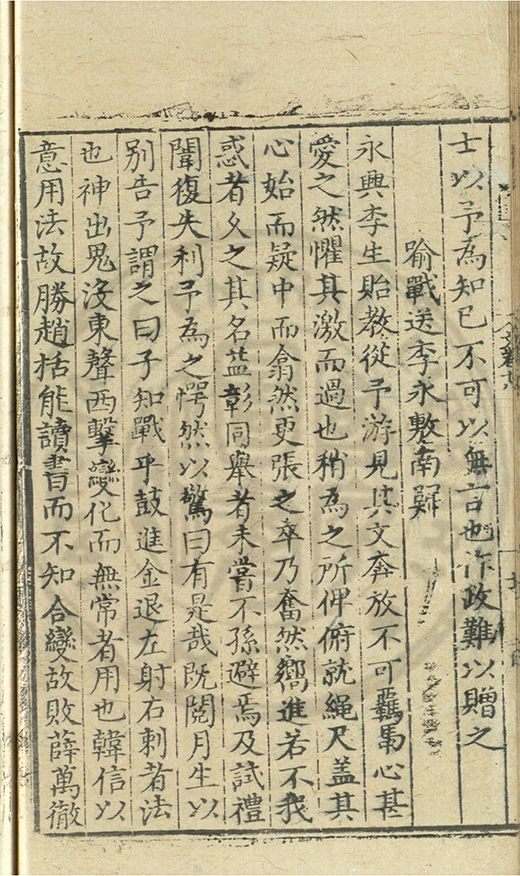 士以予為知已不可以無言也作政難以贈之
喻戰送李永敷南歸
永興李生貽教從予游見其文奔放不可羈馬心甚
愛之然懼其激而過也稍為之所俾俯就繩尺盖其
心始而疑中而翕然更張之卒乃奮然嚮進若不我
惑者久之其名益彰同舉者未嘗不孫避焉及試禮
闈復失利予為之愕然以驚曰有是哉既閱月生以
别告予謂之曰子知戰乎鼓進金退左射右刺者法
也神出鬼没東聲西擊變化而無常者用也韓信以
意用法故勝趙括能讀書而不知合變故敗薛萬徹